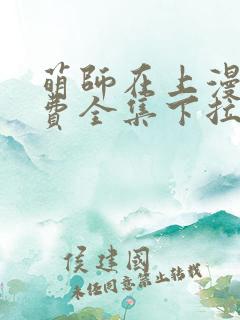 萌師在上漫
費全集下拉
侯建國
未经同意禁止转载